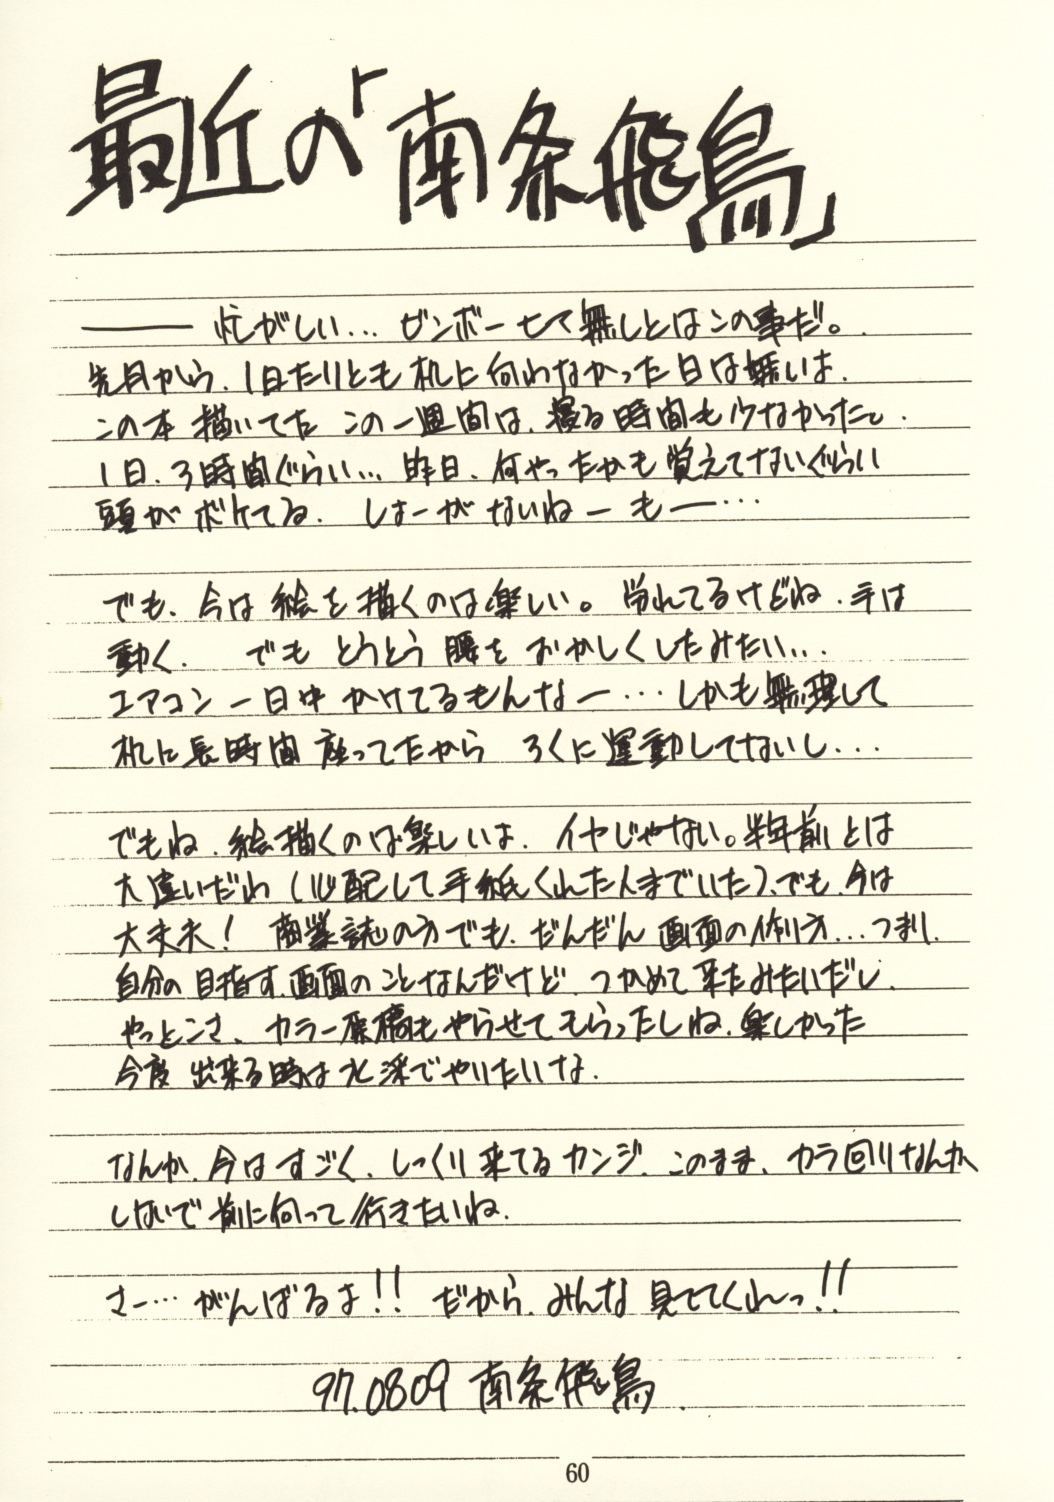 最近の「南条飛鳥」
―― 忙がしい… ビンボー七て無しとはこの事だ。
先月から、1日たりとも机に向わなかった日は無いよ、
この本描いてた この一週間は、寝る時間も少なかったし、
1日、3時間ぐらい… 昨日、何やったかも覚えてないぐらい
頭がボケてる。 しょーがないねー もー…
でも、今は絵を描くのは楽しい。 労れてるけどね、手は
動く。 でも とうとう 腰を おかしくしたみたい…
エアコン一日中かけてるもんなー… しかも無理して
机に長時間座ってたから ろくに運動してないし…
でもね、絵描くのは楽しいよ、イヤじゃない。半年前とは
大違いだわ(心配して手紙くれた人までいた)、でも、今は
大丈夫! 商業誌の方でも、だんだん画面の作り方…つまり、
自分の目指す、画面のことなんだけど、つかめて来たみたいだし、
やっとこさ、カラー原稿もやらせてもらったしね、楽しかった
今度出来る時は水彩でやりたいな。
なんか、今はすごく、しっくり来てるカンジ、このまま、カラ回りなんか
しないで前に向って行きたいね。
さー… がんばるよ!! だから、みんな見ててくれーっ!!
97.0809 南条飛鳥.
60